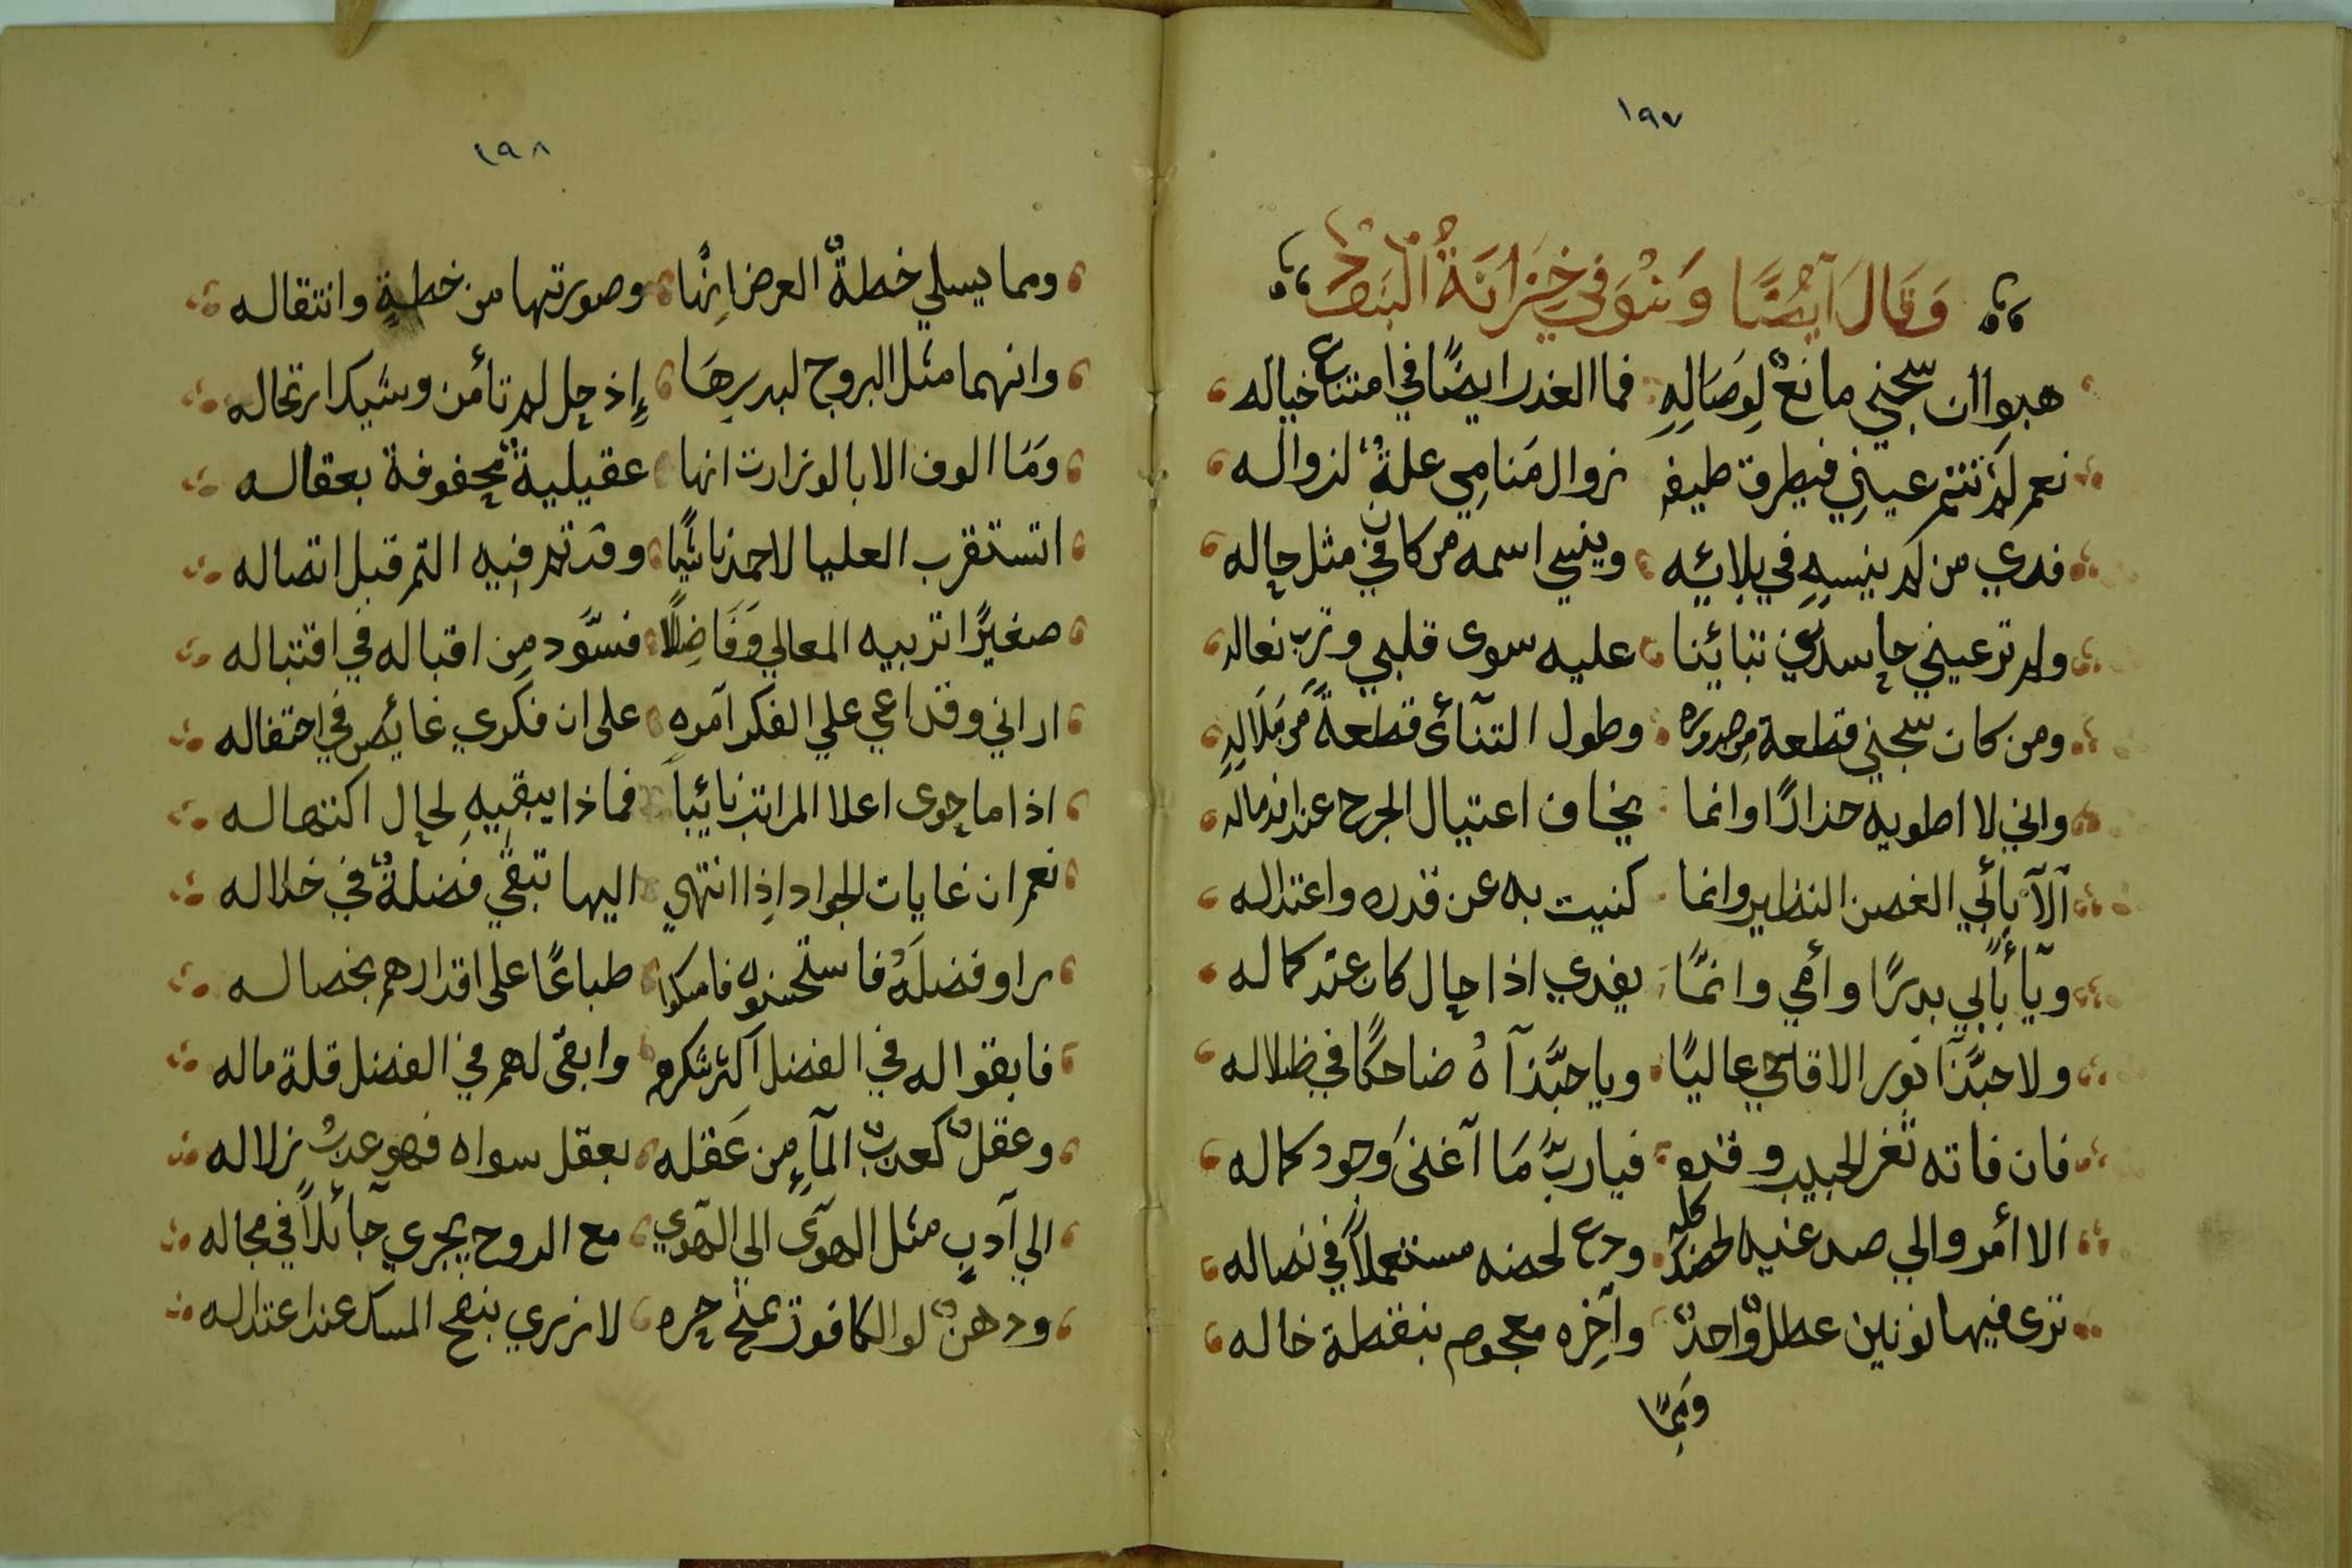 ١٩٧
وَقَالَ اَيْضًا وَهُوَ فِي خِزَانَةُ الْبُنُودْ
هبوا ان سجني مانعٌ لِوَصَالِهِ فما الغدر ايضًا في امتناع خياله
نعم لَمْ تنم عيني فيطرق طيفه زوال مَنامِي علةٌ لزواله
فدي من لم ينسهِ في بلائه وينسي اسمه من كان في مثل حاله
ولم تر عيني حاسد في تنائينا عليه سوى قلبي وترب نعاله
ومن كان سجني قطعة من صدوده وطول التنآئى قطعةً من مَلَالِهِ
واني لا اطويه حذارًا وانما يخاف اغتيال الجرح عند اندماله
اَلآ بأبي الغصن النظير وانما كنيت به عن قدره واعتداله
ويآ بأبي بدرًا وأمي وانمَّا يفدي اذا حال كان عند كماله
ولا حبَّذَا نَور الاقاحي عاليًا ويا حبَّذآ هُ ضاحكًا في ظلاله
فان فاته ثغر الحبيب وقده فيا ربَّ مَا آغنىَ وَجود كماله
الا أمر والي صد عنيه لحضه كله ودع لحضه مستعملاً في نصاله
ترى فيهما نونين عطلٌ واحدٌ وآخِره معجوم بنقطة خاله
وَمِمَّا
١٩٨
ومما يسلي خطةٌ العرض اِنهَّا وصورتها من خطةٍ وانتقاله
وانهما مثل البروج لبدرِهَا إِذ حل لم تأمن وشيك ارتحاله
وَمَا الوف الا بالوزارت انها عقيلية محفوفة بعقاله
اتستقرب العليا لاحمد نائيًا وقد تم فيه التم قبل اتصاله
صغيرًا تربيه المعالي وَفَاضِلًا فسوَّد مِن اقباله في اقتباله
اراني وقد اعي علي الفكر آمره على ان فكري غائص في احتفاله
اذا ما حوى اعلا المراتب نائباً فماذا يبقيهِ لحال اكتهاله
نعم ان غايات الجواد اِذا انتهي اليها تبقي فضلةٌ في خلاله
راو فضلَهُ فاستحسنوه فامسكوا طباعًا على اقدارهم بخصاله
فابقوا له في الفضل اكثر شكرهم وابقى لهم في الفضل قلة ماله
وعقلٌ كعذبِ المآءِ من عَقله بعقل سواه فهو عذبُ زلاله
الي آدبٍ مثل الهوَى الي الهوي مع الروح يجري جآئلاً في مجاله
ودهنٌ لو الكافور يمنح حره لازري بنفح المسك عند اعتداله